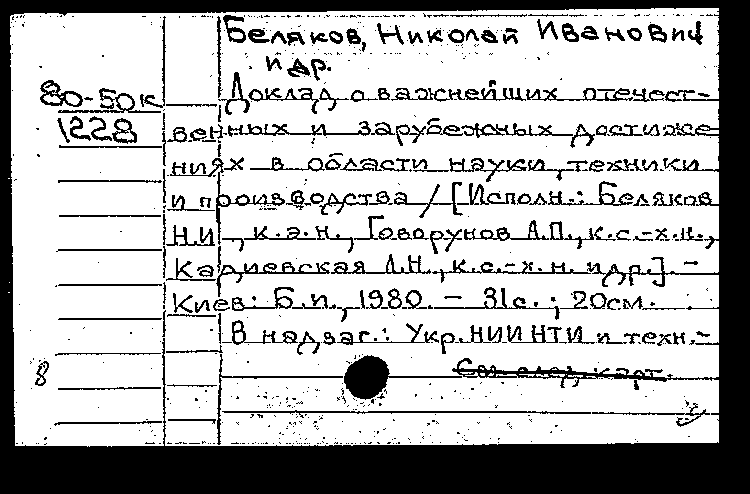 Беляков, Николай Иванович
и др.
80-50к Доклад о важнейших отечест-
1228 венных и зарубежных достиже
ниях в области науки, техники
и производства / [Исполн.: Беляков
Н.И., к.э.н., Говорунов А.П., к.с.-х.н.,
Кадиевская Л.Н., к.с.-х.н. и др.]. -
Киев: Б.и., 1980. - 31с.; 20см.
В надзаг.: Укр. НИИ НТИ и техн.-
8 См. след. карт.